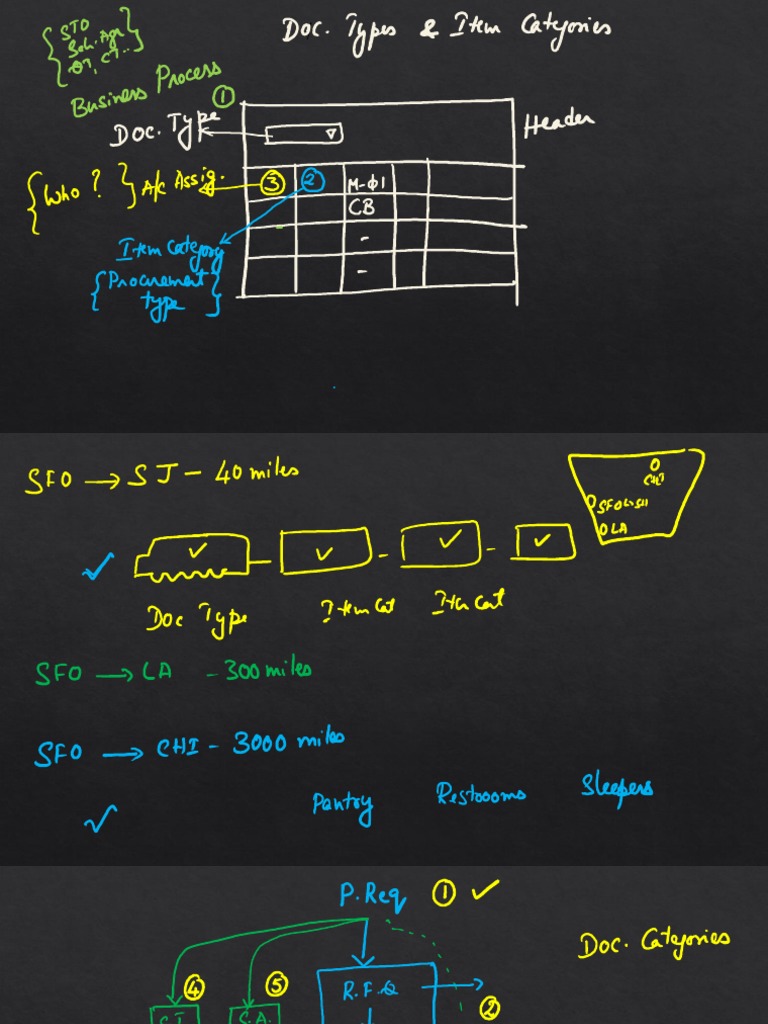 Doc. Types & Item Categories
STO
Sch. Agr
QT, CT..
Business Process
1
Doc. Type
Header
Who ?
A/c Assig.
3
2
M-01
CB
-
-
Item Category
Procurement
type
SFO → SJ - 40 miles
CHI
SFO
LA
Doc Type
Item Cat
Item Cat
SFO → LA - 300 miles
SFO → CHI - 3000 miles
Pantry
Restoooms
Sleepers
P.Req
1
Doc. Categories
4
5
R.F.Q
2
S.A.